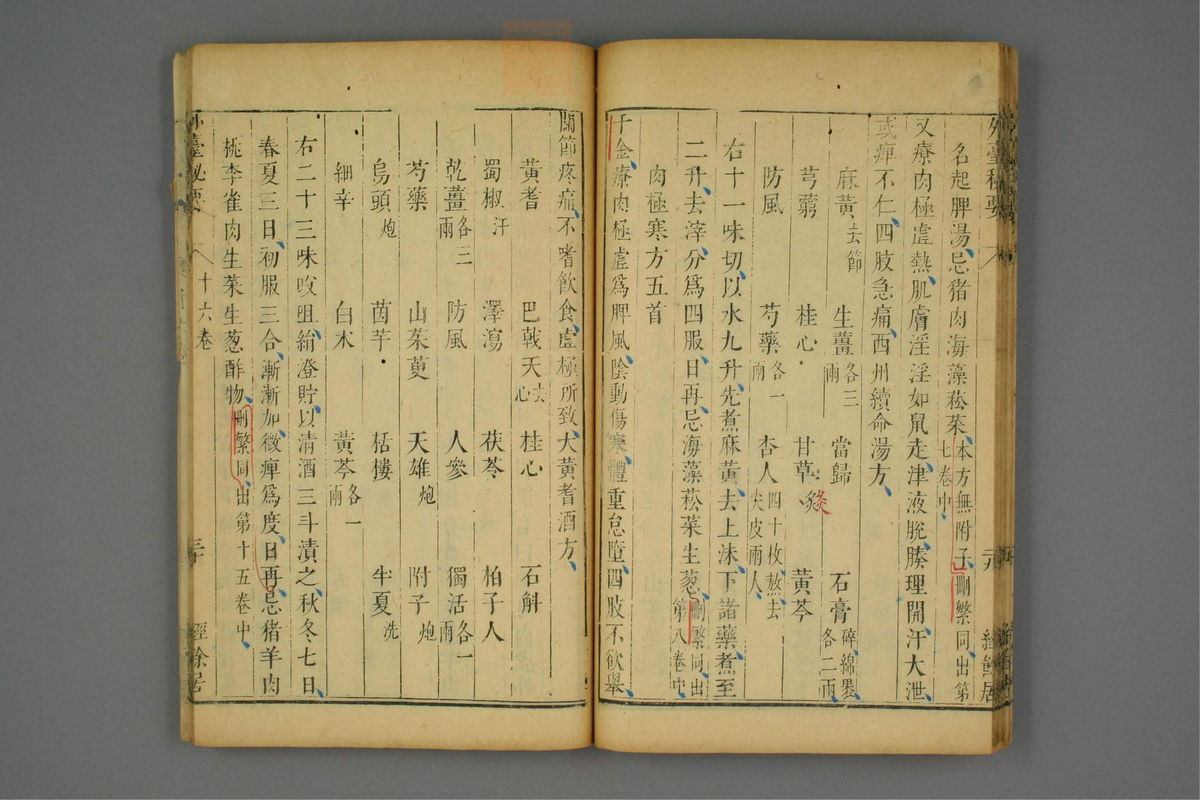 外臺秘要
名起脾湯、忌猪肉海藻菘菜、本方無附子、刪繁同、出第七卷中、
又療肉極虛熱、肌膚淫淫如鼠走、津液脫、腠理開、汗大泄、
或痺不仁、四肢急痛、西州續命湯方、
麻黃去節 生薑各三兩 當歸 石膏碎綿褁各二兩
芎藭 桂心 甘草炙 黃芩
防風 芍藥各一兩 杏人四十枚、熬、去尖皮兩人、
右十一味切、以水九升、先煮麻黃、去上沫、下諸藥、煮至
二升、去滓、分爲四服、日再、忌海藻菘菜生葱、刪繁同、出第八卷中
肉極寒方五首
千金、療肉極虛爲脾風、陰動傷寒、體重怠墮、四肢不欲舉、
關節疼痛、不嗜飲食、虛極所致、大黃耆酒方、
黃耆 巴戟天去心 桂心 石斛
蜀椒汗 澤瀉 茯苓 柏子人
乾薑各三兩 防風 人參 獨活各一兩
芍藥 山茱萸 天雄炮 附子炮
烏頭炮 茵芋 栝樓 半夏洗
細辛 白术 黃芩各一兩
右二十三味㕮咀、絹澄貯、以清酒三斗漬之、秋冬七日、
春夏三日、初服三合、漸漸加、微痺爲度、日再、忌猪羊肉
桃李雀肉生菜生葱酢物、刪繁同、出第十五卷中、
外臺秘要 十六卷 三十 經餘居